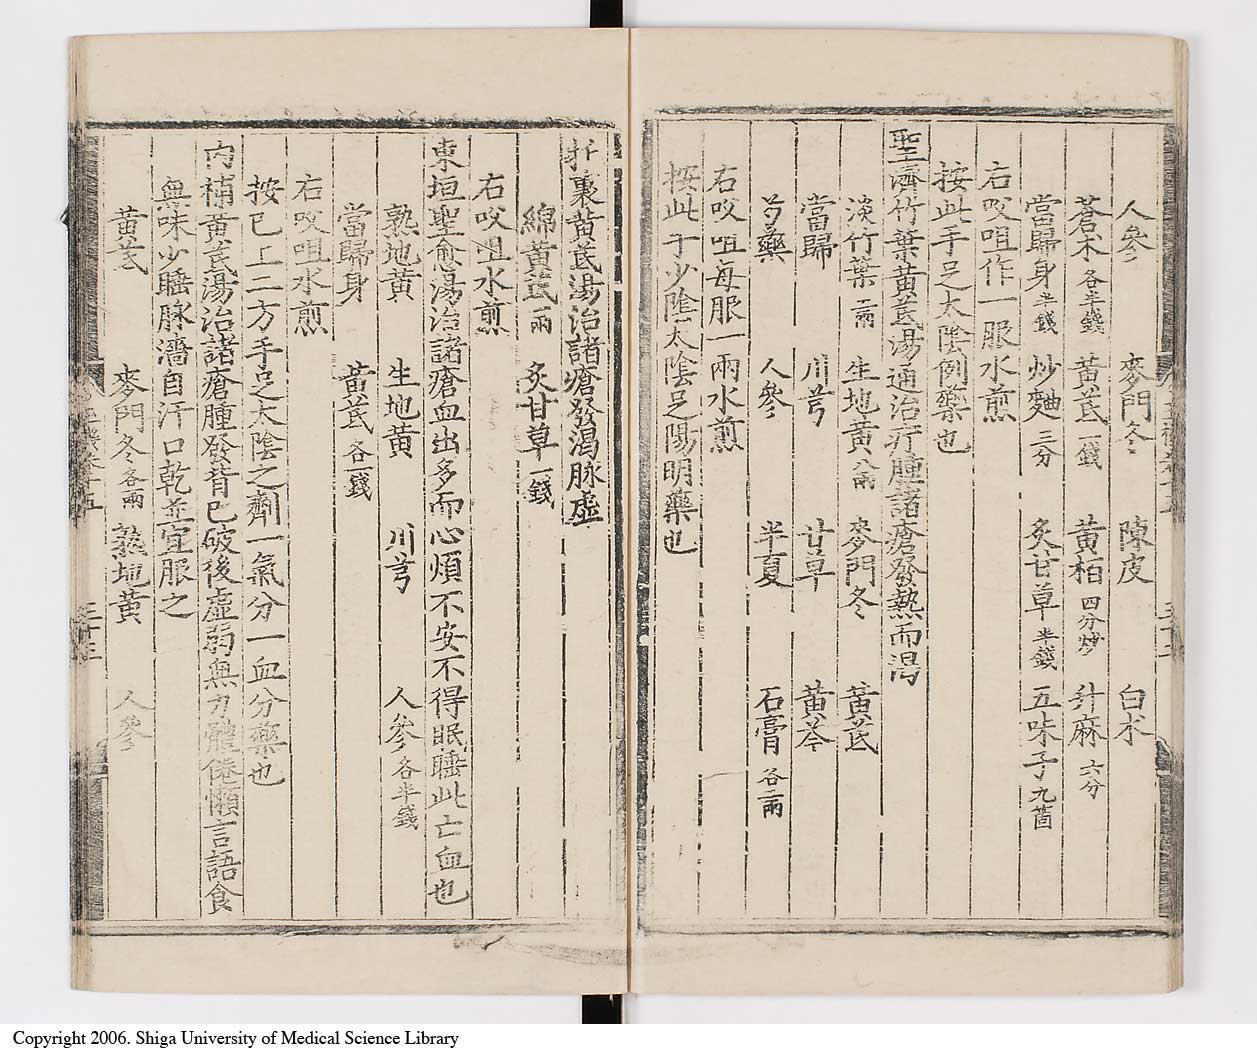 人參 麥門冬 陳皮 白朮
蒼朮各半錢 黃芪一錢 黃栢四分炒 升麻六分
當歸身半錢 炒麯三分 炙甘草半錢 五味子九箇
右㕮咀作一服水煎
按此手足太陰例藥也
聖濟竹葉黃芪湯通治疔腫諸瘡發熱而渴
淡竹葉二兩 生地黃八兩 麥門冬 黃芪
當歸 川芎 甘草 黃芩
芍藥 人參 半夏 石膏各二兩
右㕮咀每服一兩水煎
按此手少陰太陰足陽明藥也
托裏黃芪湯治諸瘡發渴脉虛
綿黃芪一兩 炙甘草一錢
右㕮咀水煎
東垣聖愈湯治諸瘡血出多而心煩不安不得眠睡此亡血也
熟地黃 生地黃 川芎 人參各半錢
當歸身 黃芪各一錢
右㕮咀水煎
按已上二方手足太陰之劑一氣分一血分藥也
內補黃芪湯治諸瘡腫發背已破後虛弱無力體倦懶言語食
無味少睡脉濇自汗口乾並宜服之
黃芪 麥門冬各一兩 熟地黃 人參
Copyright 2006. Shiga University of Medical Science Library